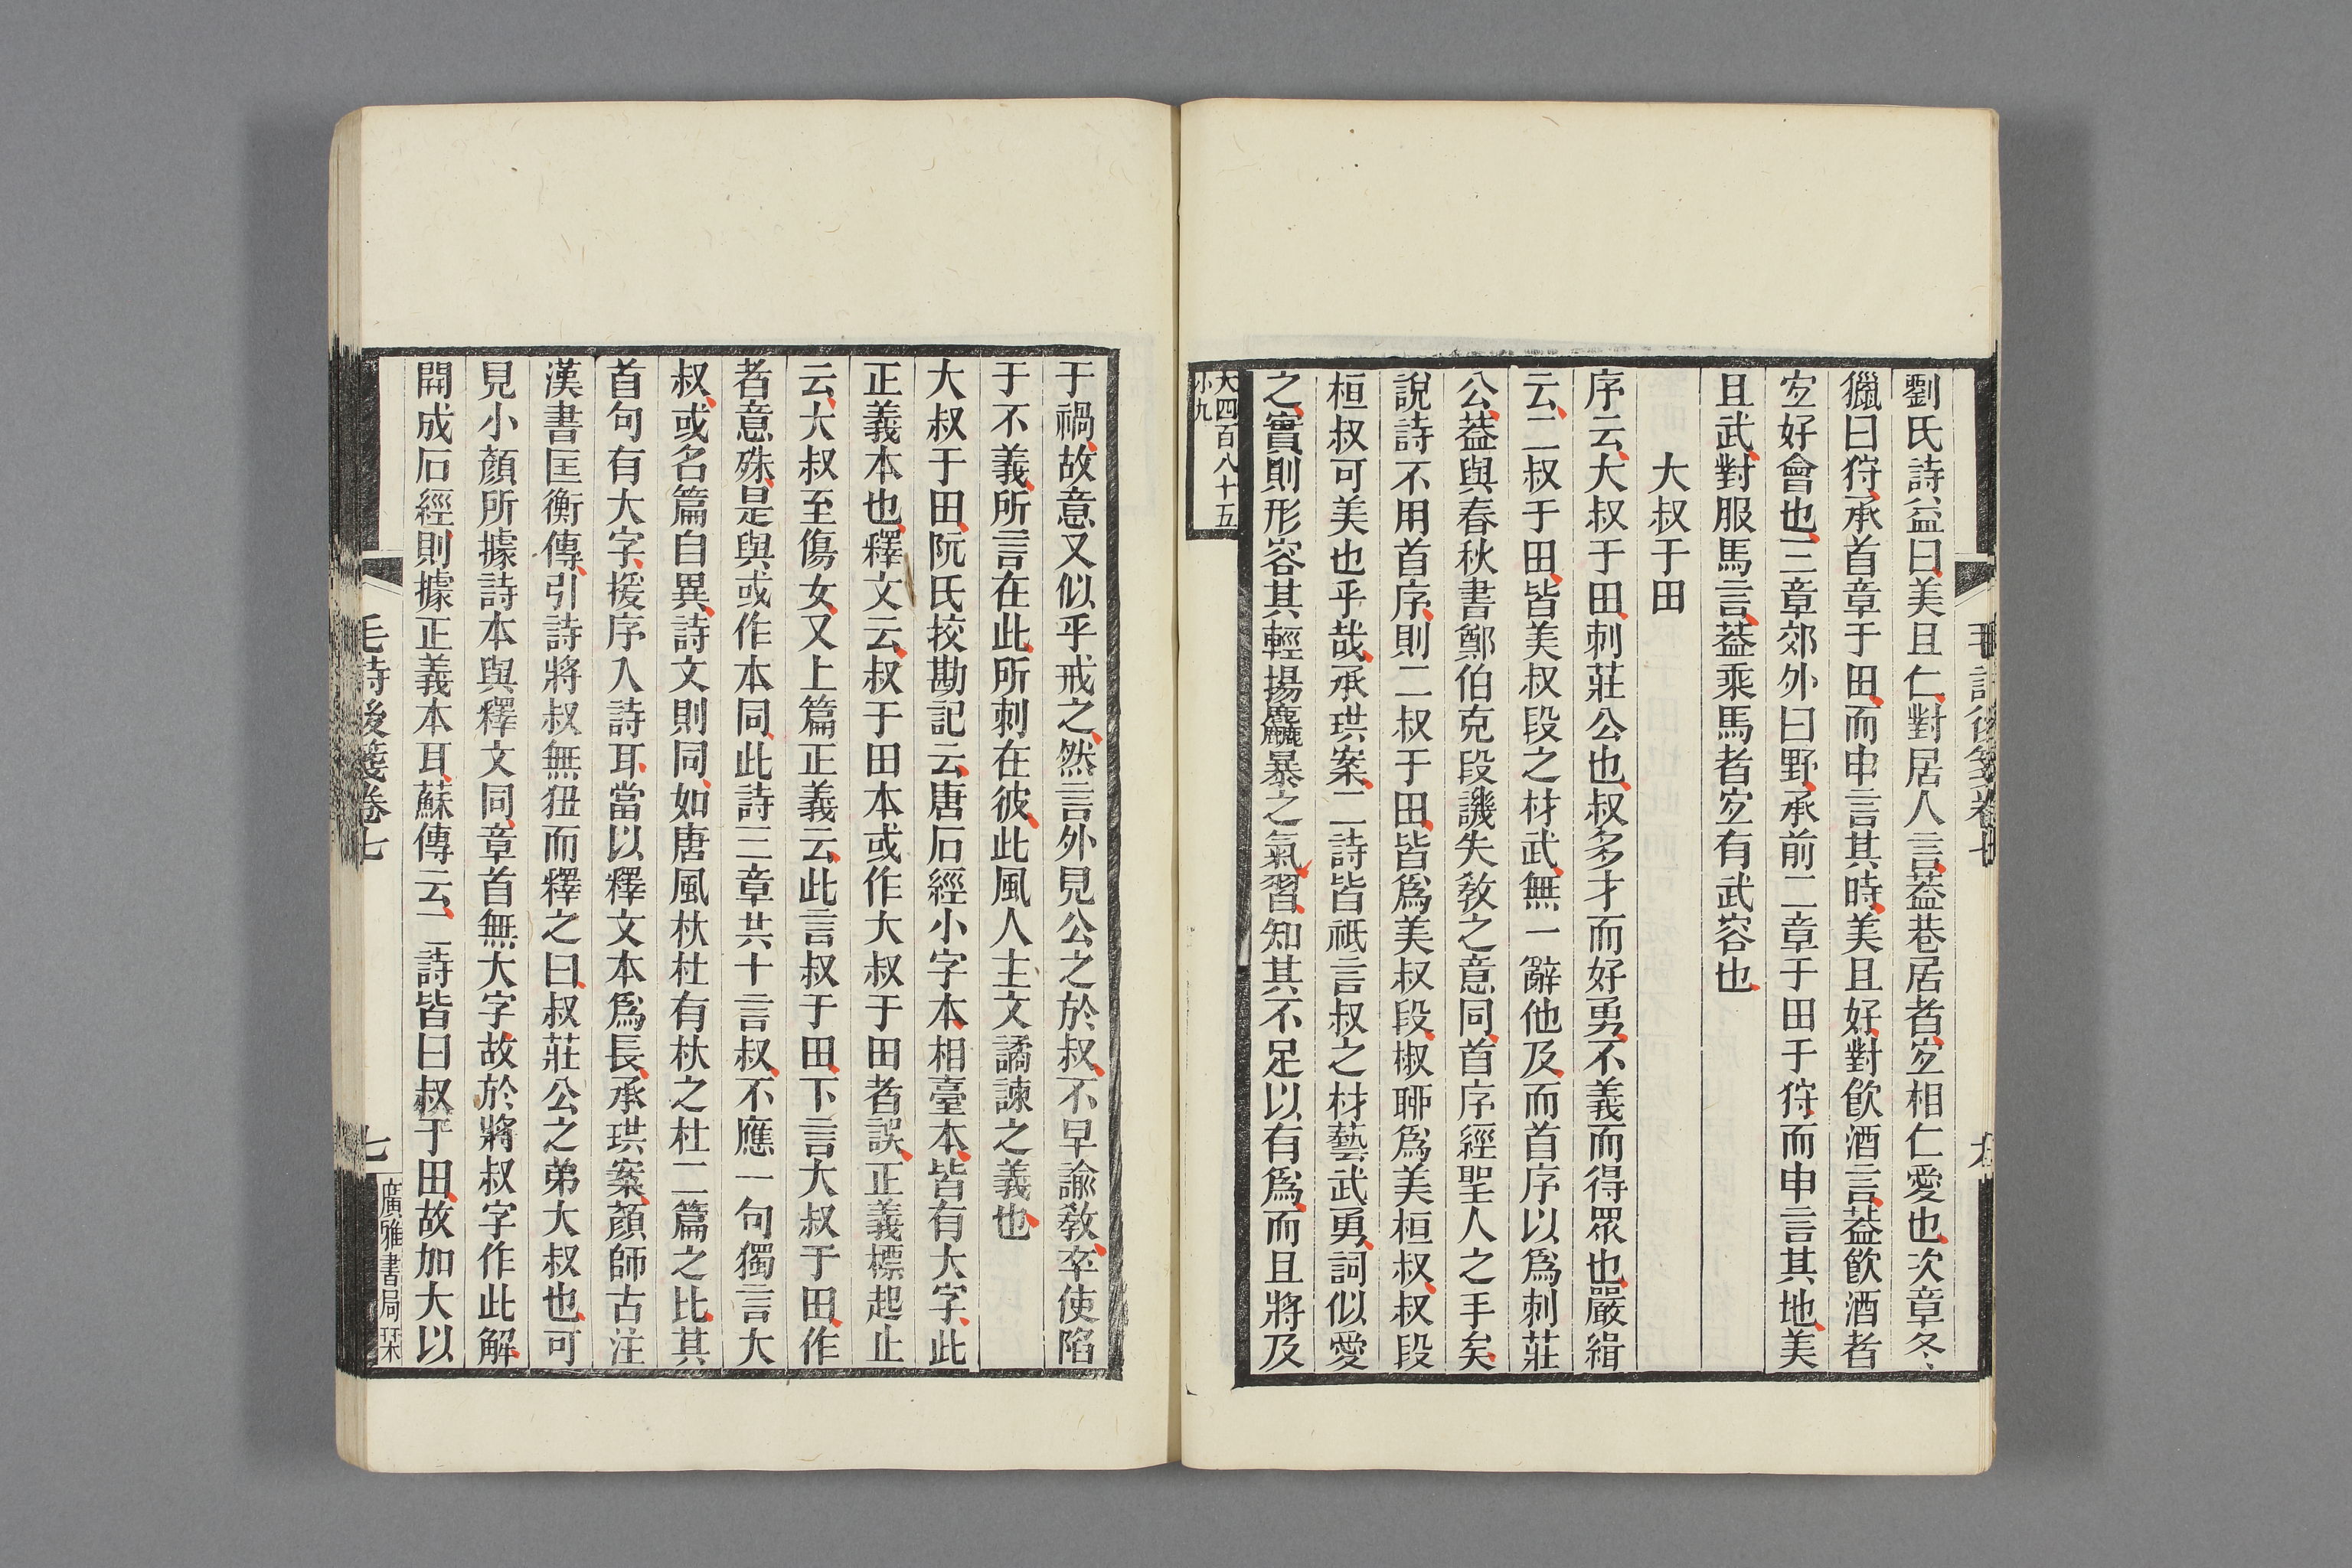 劉氏詩益曰美且仁對居人言葢巷居者宐相仁愛也次章冬
獵曰狩承首章于田而申言其時美且好對飮酒言葢飮酒者
宐好會也三章郊外曰野承前二章于田于狩而申言其地美
且武對服馬言葢乘馬者宐有武容也
大叔于田
序云大叔于田刺莊公也叔多才而好勇不義而得眾也嚴緝
云二叔于田皆美叔段之材武無一辭他及而首序以爲刺莊
公葢與春秋書鄭伯克段譏失敎之意同首序經聖人之手矣
說詩不用首序則二叔于田皆爲美叔段椒聊爲美桓叔叔段
桓叔可美也乎哉承珙案二詩皆祇言叔之材藝武勇詞似愛
之實則形容其輕揚麤暴之氣習知其不足以有爲而且將及
大四百八十五
小九
于禍故意又似乎戒之然言外見公之於叔不早諭敎卒使陷
于不義所言在此所刺在彼此風人主文譎諫之義也
大叔于田阮氏挍勘記云唐石經小字本相臺本皆有大字此
正義本也釋文云叔于田本或作大叔于田者誤正義標起止
云大叔至傷女又上篇正義云此言叔于田下言大叔于田作
者意殊是與或作本同此詩三章共十言叔不應一句獨言大
叔或名篇自異詩文則同如唐風杕杜有杕之杜二篇之比其
首句有大字援序入詩耳當以釋文本爲長承珙案顏師古注
漢書匡衡傳引詩將叔無狃而釋之曰叔莊公之弟大叔也可
見小顏所據詩本與釋文同章首無大字故於將叔字作此解
開成石經則據正義本耳蘇傳云二詩皆曰叔于田故加大以
毛詩後箋卷七
七
廣雅書局栞